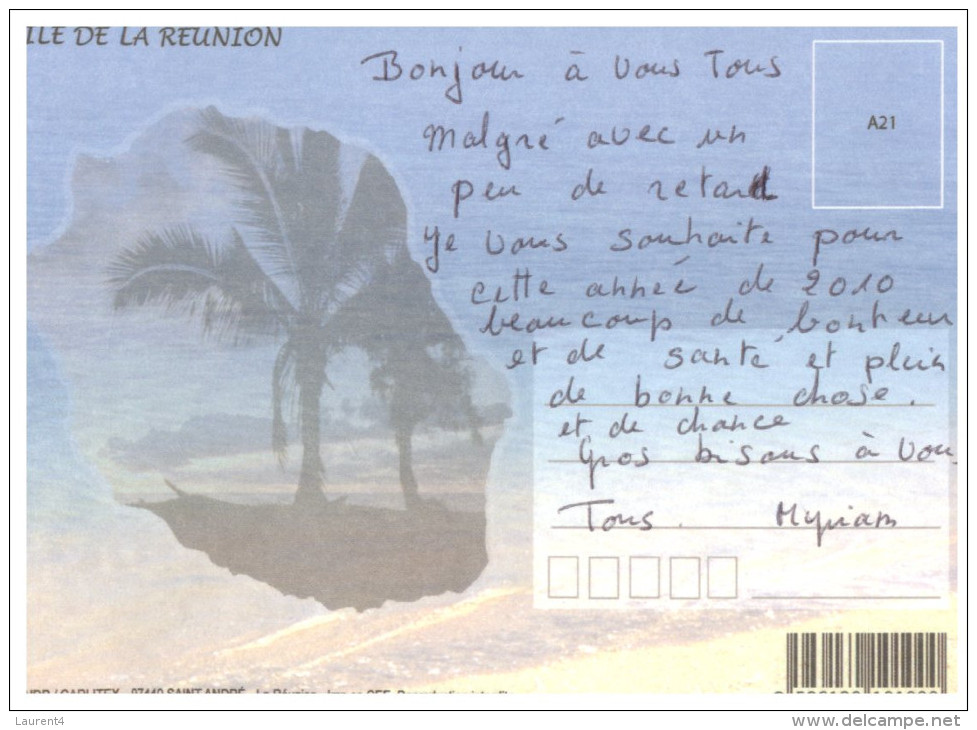 ILE DE LA REUNION
Bonjour à Vous Tous
A21
Malgré avec un
peu de retard
Je Vous souhaite pour
cette année de 2010
beaucoup de bonheur
et de santé et plein
de bonne chose.
et de chance
Gros bisous à Vous
Tous. Myriam
97440 SAINT-ANDRÉ
Laurent4
www.delcampe.net